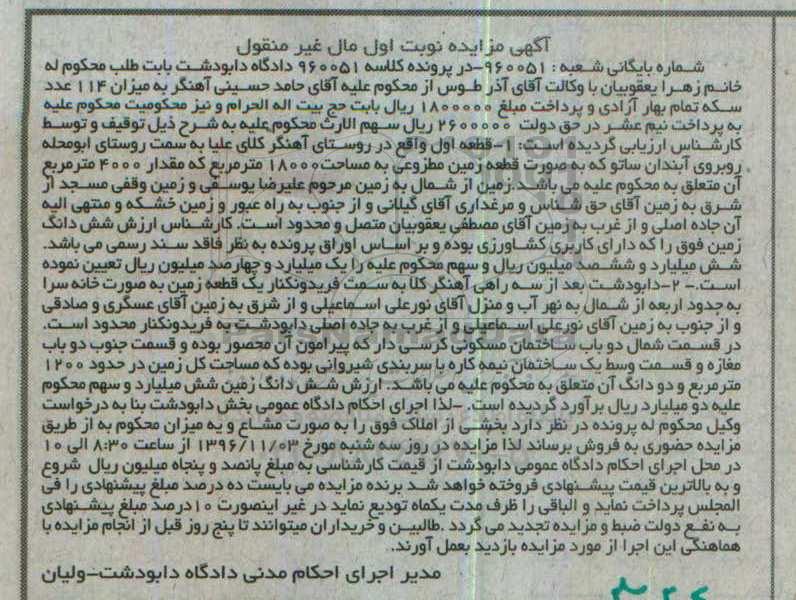 آگهی مزایده نوبت اول مال غیر منقول
شماره بایگانی شعبه : ۹۶۰۰۵۱-در پرونده کلاسه ۹۶۰۰۵۱ دادگاه دابودشت بابت طلب محکوم له
خانم زهرا یعقوبیان با وکالت آقای آذر طوس از محکوم علیه آقای حامد حسینی آهنگر به میزان ۱۱۴ عدد
سکه تمام بهار آزادی و پرداخت مبلغ ۱۸۰۰۰۰۰۰ ریال بابت حج بیت اله الحرام و نیز محکومیت محکوم علیه
به پرداخت نیم عشر در حق دولت ۲۶۰۰۰۰۰ ریال سهم الارث محکوم علیه به شرح ذیل توقیف و توسط
کارشناس ارزیابی گردیده است: ۱-قطعه اول واقع در روستای آهنگر کلای علیا به سمت روستای ابومحله
روبروی آبندان ساتو که به صورت قطعه زمین مطزوعی به مساحت۱۸۰۰۰ مترمربع که مقدار ۴۰۰۰ مترمربع
آن متعلق به محکوم علیه می باشد.زمین از شمال به زمین مرحوم علیرضا یوسفی و زمین وقفی مسجد از
شرق به زمین آقای حق شناس و مرغداری آقای گیلانی و از جنوب به راه عبور و زمین خشکه و منتهی الیه
آن جاده اصلی و از غرب به زمین آقای مصطفی یعقوبیان متصل و محدود است. کارشناس ارزش شش دانگ
زمین فوق را که دارای کاربری کشاورزی بوده و بر اساس اوراق پرونده به نظر فاقد سند رسمی می باشد.
شش میلیارد و ششصد میلیون ریال و سهم محکوم علیه را یک میلیارد و چهارصد میلیون ریال تعیین نموده
است.- ۲-دابودشت بعد از سه راهی آهنگر کلا به سمت فریدونکنار یک قطعه زمین به صورت خانه سرا
به حدود اربعه از شمال به نهر آب و منزل آقای نورعلی اسماعیلی و از شرق به زمین آقای عسگری و صادقی
و از جنوب به زمین آقای نورعلی اسماعیلی و از غرب به جاده اصلی دابودشت به فریدونکنار محدود است.
در قسمت شمال دو باب ساختمان مسکونی کرسی دار که پیرامون آن محصور بوده و قسمت جنوب دو باب
مغازه و قسمت وسط یک ساختمان نیمه کاره با سربندی شیروانی بوده که مساحت کل زمین در حدود ۱۲۰۰
مترمربع و دو دانگ آن متعلق به محکوم علیه می باشد. ارزش شش دانگ زمین شش میلیارد و سهم محکوم
علیه دو میلیارد ریال برآورد گردیده است. -لذا اجرای احکام دادگاه عمومی بخش دابودشت بنا به درخواست
وکیل محکوم له پرونده در نظر دارد بخشی از املاک فوق را به صورت مشاع و به میزان محکوم به از طریق
مزایده حضوری به فروش برساند لذا مزایده در روز سه شنبه مورخ ۱۳۹۶/۱۱/۰۳ از ساعت ۸:۳۰ الی ۱۰
در محل اجرای احکام دادگاه عمومی دابودشت از قیمت کارشناسی به مبلغ پانصد و پنجاه میلیون ریال شروع
و به بالاترین قیمت پیشنهادی فروخته خواهد شد برنده مزایده می بایست ده درصد مبلغ پیشنهادی را فی
المجلس پرداخت نماید و الباقی را ظرف مدت یکماه تودیع نماید در غیر اینصورت ۱۰درصد مبلغ پیشنهادی
به نفع دولت ضبط و مزایده تجدید می گردد .طالبین و خریداران میتوانند تا پنج روز قبل از انجام مزایده با
هماهنگی این اجرا از مورد مزایده بازدید بعمل آورند.
مدیر اجرای احکام مدنی دادگاه دابودشت-ولیان